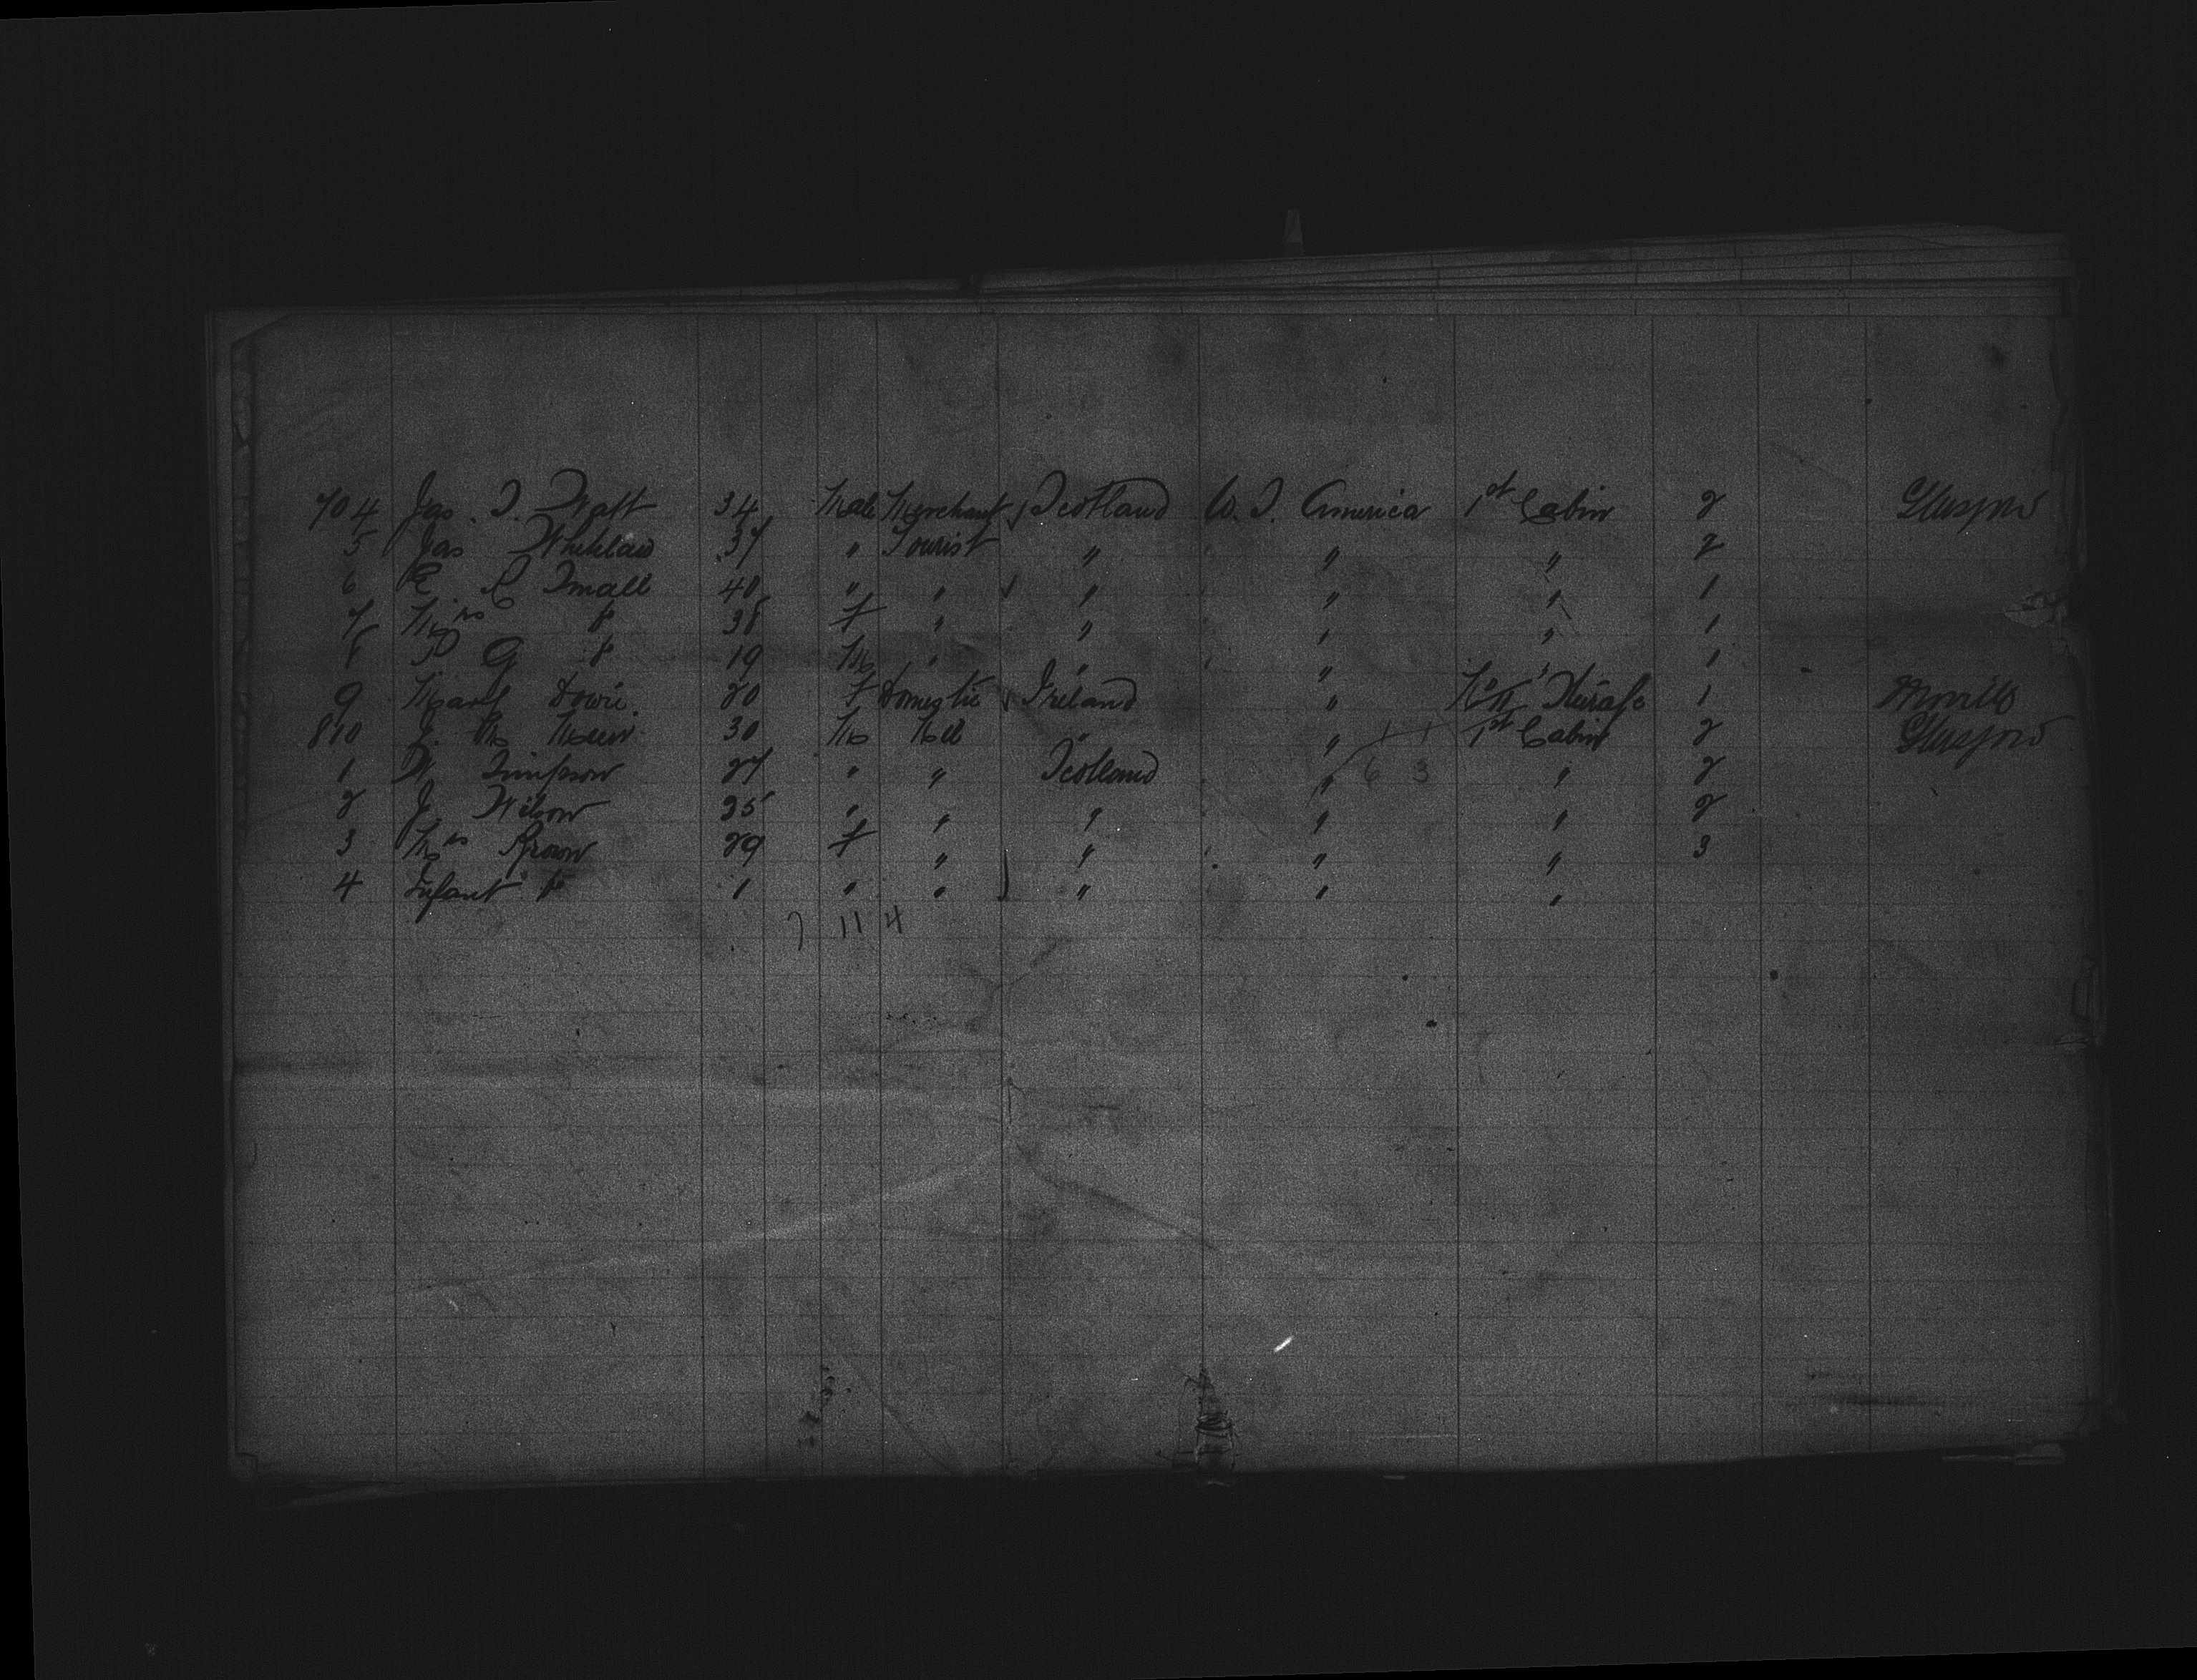 704 Jas. T. Watt 34 Male Merchant Scotland U.S. America 1st Cabin 2 Glasgow
5 Jas Whitelaw 37 " Tourist " " " 2
6 R. C Small 40 " " " " " 1
7 Mrs " 38 F " " " " 1
8 P G " 19 M " " " " 1
9 Mary Dowie 20 F Domestic Ireland " No 1 Steerage 1 Moville
810 J. 30 M " " 1st Cabin 2 Glasgow
1 W Simpson 27 " " Scotland " " 2
2 J. Wilson 25 " " " " " 2
3 Mrs Brown 29 F " " " " 3
4 Infant " 1 " " " " "
7 11 4
6 3